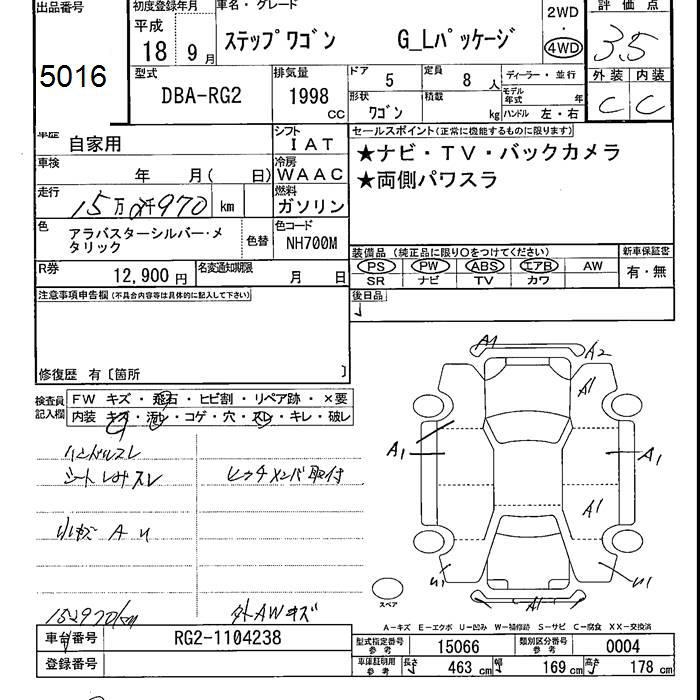 出品番号
5016
初度登録年月
平成
18 9月
車名・グレード
ステップワゴン G_Lパッケージ
2WD
・
4WD
評価点
3.5
外装 内装
C C
型式
DBA-RG2
排気量
1998 CC
ドア 5
定員 8 人
形状 ワゴン
積載 kg
ディーラー・並行
モデル年式 年
ハンドル 左・右
車歴 自家用
シフト IAT
車検 年 月( 日)
冷房 WAAC
走行 15万2千970 km
燃料 ガソリン
色
アラバスターシルバー・メ
タリック
色替
色コード
NH700M
R券 12,900円
名変通知期限 月 日
セールスポイント(正常に機能するものに限ります)
★ナビ・TV・バックカメラ
★両側パワスラ
装備品 (純正品に限り〇をつけてください)
PS PW ABS エアB AW
SR ナビ TV カワ
新車保証書
有・無
後日品
注意事項申告欄(不具合内容等は具体的に記入して下さい)
修復歴 有〔箇所 〕
検査員
記入欄
FW キズ・飛石・ヒビ割・リペア跡・×要
内装 キズ・汚レ・コゲ・穴・スレ・キレ・破レ
ハンドルスレ
シート シミ スレ
ヒッチメンバ取付
A u
152970km
外AWキズ
A1
A2
A1
A1
A1
A1
u1
u1
A1
スペア
A-キズ E-エクボ U-凹み W-補修跡 S-サビ C-腐食 XX-交換済
車台番号 RG2-1104238
登録番号
型式指定番号
参考
15066
類別区分番号
参考
0004
車庫証明用
参考
長さ 463 cm
幅 169 cm
高さ 178 cm